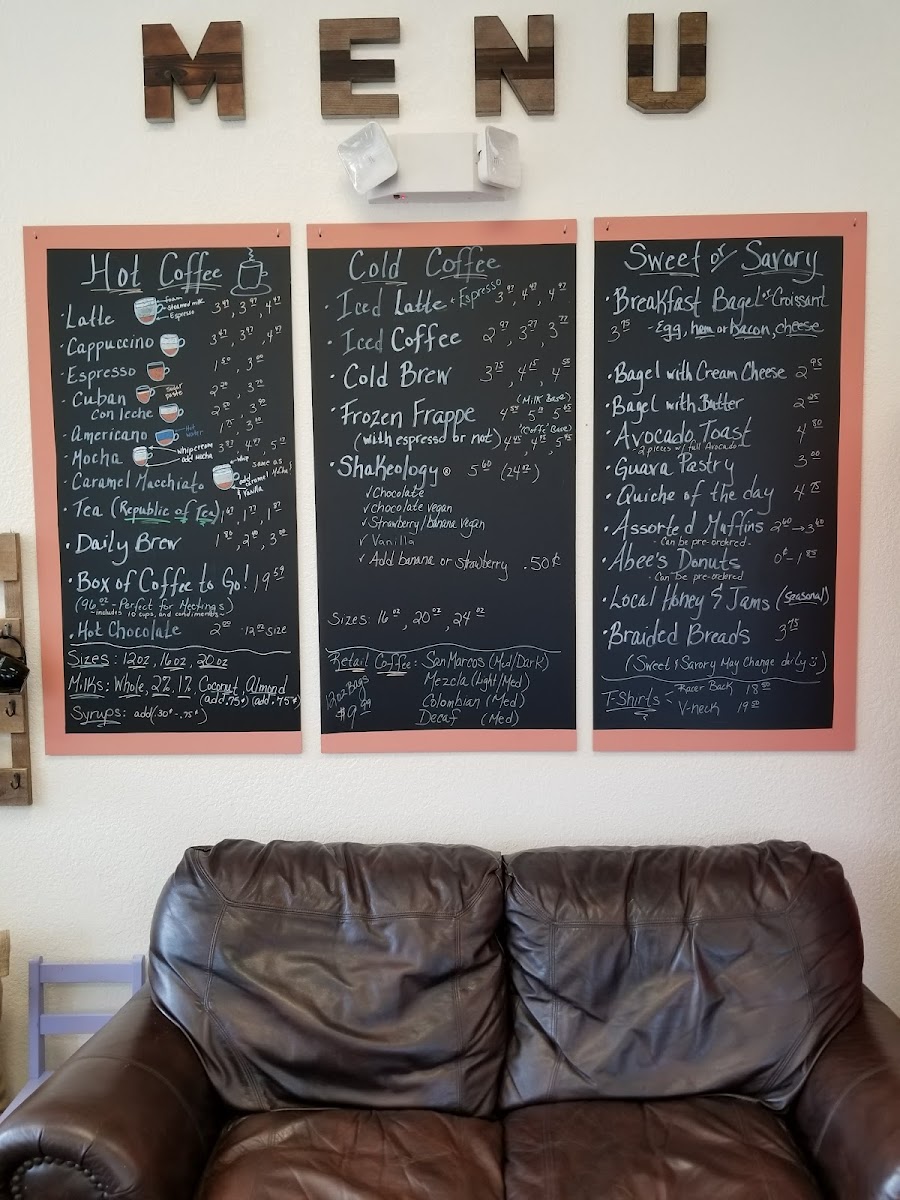 MENU
Hot Coffee
·Latte
foam
steamed milk
Espresso
·Cappuccino
·Espresso
·Cuban
sugar paste
con leche
·Americano
Hot water
·Mocha
whip cream
add Mocha
·Caramel Macchiato
whip
same as Mocha
add caramel & Vanilla
·Tea (Republic of Tea)
·Daily Brew
·Box of Coffee to Go! 19 59
(96oz - Perfect for Meetings)
-includes 10 cups, and condiments-
·Hot Chocolate 2 00 ·12oz size
Sizes: 12oz, 16oz, 20oz
Milks: Whole, 2%, 1%, Coconut, Almond
(add .75¢) (add .75¢)
Syrups: add (.30¢ - .75¢)
Cold Coffee
·Iced Latte + Espresso
·Iced Coffee
·Cold Brew
(Milk Base)
·Frozen Frappe
("Coffee" Base)
(with espresso or not)
·Shakeology® 5 60 (24oz)
✓Chocolate
✓chocolate vegan
✓Strawberry/banana vegan
✓Vanilla
✓Add banana or strawberry .50¢
Sizes: 16oz, 20oz, 24oz
Retail Coffee: San Marcos (Med/Dark)
12oz Bags
Mezcla (Light/Med)
$9 99
Colombian (Med)
Decaf (Med)
Sweet or Savory
·Breakfast Bagel or Croissant
3 75 -Egg, ham or bacon, cheese
·Bagel with Cream Cheese 2 95
·Bagel with Butter 2 25
·Avocado Toast 4 80
2 pieces w/ full Avocado
·Guava Pastry 3 00
·Quiche of the day 4 75
·Assorted Muffins 2 60 → 3 60
-Can be pre-ordered-
·Abee's Donuts
-Can be pre-ordered
·Local Honey & Jams (seasonal)
·Braided Breads 3 75
(Sweet & Savory May Change daily ☺)
T-Shirts
Racer Back 18 50
V-neck 19 50